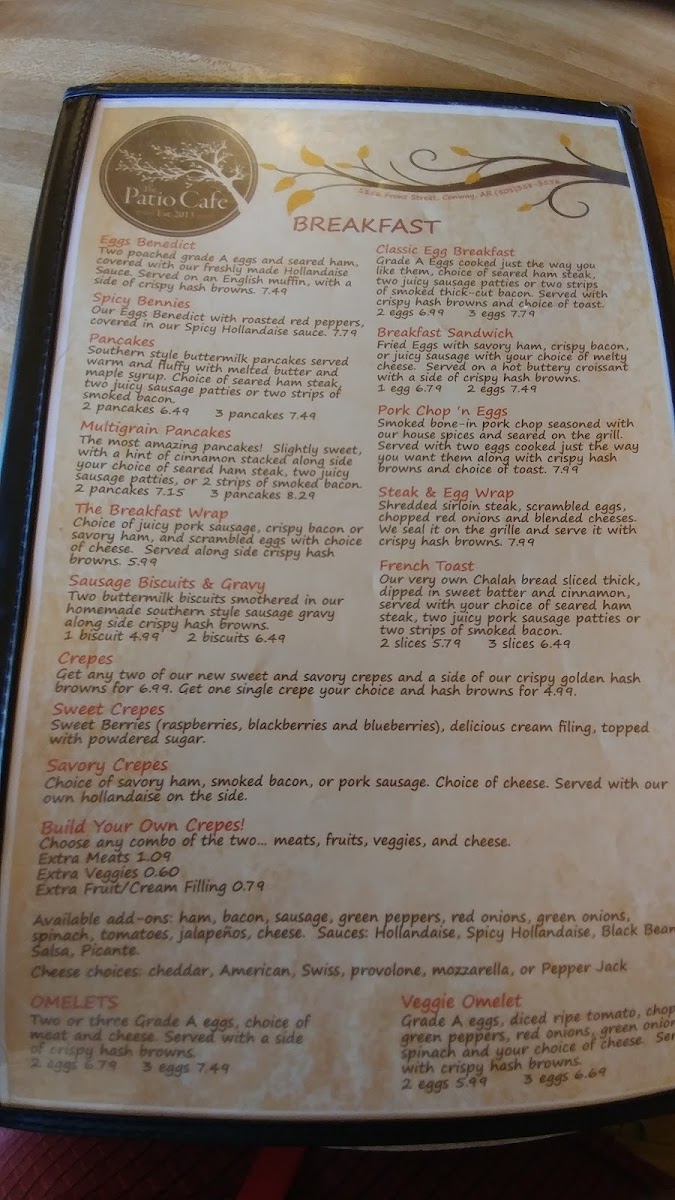 The
Patio Cafe
Est. 2013
Front Street, Conway, AR
BREAKFAST
Eggs Benedict
Two poached grade A eggs and seared ham,
covered with our freshly made Hollandaise
Sauce. Served on an English muffin, with a
side of crispy hash browns. 7.49
Spicy Bennies
Our Eggs Benedict with roasted red peppers,
covered in our Spicy Hollandaise sauce. 7.79
Pancakes
Southern style buttermilk pancakes served
warm and fluffy with melted butter and
maple syrup. Choice of seared ham steak,
two juicy sausage patties or two strips of
smoked bacon.
2 pancakes 6.49 3 pancakes 7.49
Multigrain Pancakes
The most amazing pancakes! Slightly sweet,
with a hint of cinnamon stacked along side
your choice of seared ham steak, two juicy
sausage patties, or 2 strips of smoked bacon.
2 pancakes 7.15 3 pancakes 8.29
The Breakfast Wrap
Choice of juicy pork sausage, crispy bacon or
savory ham, and scrambled eggs with choice
of cheese. Served along side crispy hash
browns. 5.99
Sausage Biscuits & Gravy
Two buttermilk biscuits smothered in our
homemade southern style sausage gravy
along side crispy hash browns.
1 biscuit 4.99 2 biscuits 6.49
Classic Egg Breakfast
Grade A Eggs cooked just the way you
like them, choice of seared ham steak,
two juicy sausage patties or two strips
of smoked thick-cut bacon. Served with
crispy hash browns and choice of toast.
2 eggs 6.99 3 eggs 7.79
Breakfast Sandwich
Fried Eggs with savory ham, crispy bacon,
or juicy sausage with your choice of melty
cheese. Served on a hot buttery croissant
with a side of crispy hash browns.
1 egg 6.79 2 eggs 7.49
Pork Chop 'n Eggs
Smoked bone-in pork chop seasoned with
our house spices and seared on the grill.
Served with two eggs cooked just the way
you want them along with crispy hash
browns and choice of toast. 7.99
Steak & Egg Wrap
Shredded sirloin steak, scrambled eggs,
chopped red onions and blended cheeses.
We seal it on the grille and serve it with
crispy hash browns. 7.99
French Toast
Our very own Chalah bread sliced thick,
dipped in sweet batter and cinnamon,
served with your choice of seared ham
steak, two juicy pork sausage patties or
two strips of smoked bacon.
2 slices 5.79 3 slices 6.49
Crepes
Get any two of our new sweet and savory crepes and a side of our crispy golden hash
browns for 6.99. Get one single crepe your choice and hash browns for 4.99.
Sweet Crepes
Sweet Berries (raspberries, blackberries and blueberries), delicious cream filing, topped
with powdered sugar.
Savory Crepes
Choice of savory ham, smoked bacon, or pork sausage. Choice of cheese. Served with our
own hollandaise on the side.
Build Your Own Crepes!
Choose any combo of the two... meats, fruits, veggies, and cheese.
Extra Meats 1.09
Extra Veggies 0.60
Extra Fruit/Cream Filling 0.79
Available add-ons: ham, bacon, sausage, green peppers, red onions, green onions,
spinach, tomatoes, jalapeños, cheese. Sauces: Hollandaise, Spicy Hollandaise, Black Bean
Salsa, Picante.
Cheese choices: cheddar, American, Swiss, provolone, mozzarella, or Pepper Jack
OMELETS
Two or three Grade A eggs, choice of
meat and cheese. Served with a side
of crispy hash browns.
2 eggs 6.79 3 eggs 7.49
Veggie Omelet
Grade A eggs, diced ripe tomato, chop
green peppers, red onions, green onion
spinach and your choice of cheese. Ser
with crispy hash browns.
2 eggs 5.99 3 eggs 6.69